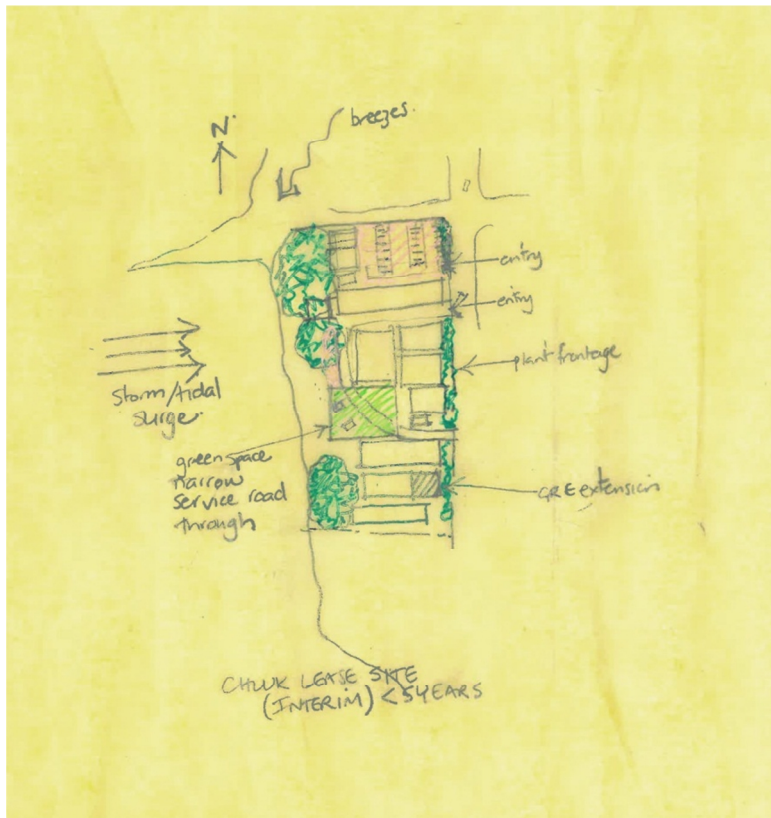 breezes.
N.
entry
entry
plant frontage
Storm/tidal
surge.
green space
narrow
service road
through
GRE extension
CHUUK LEASE SITE
(INTERIM) < 5 YEARS